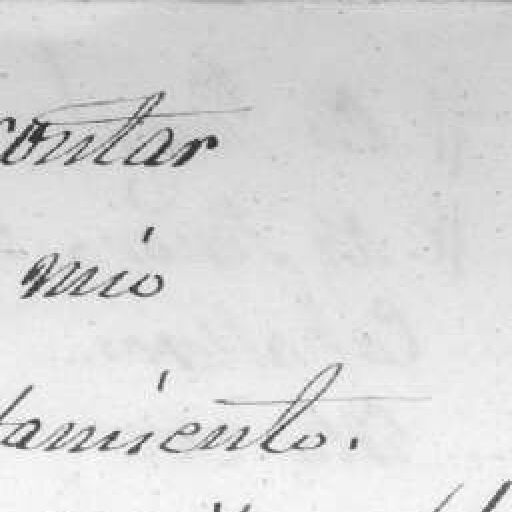 contar
mio
tamiento.